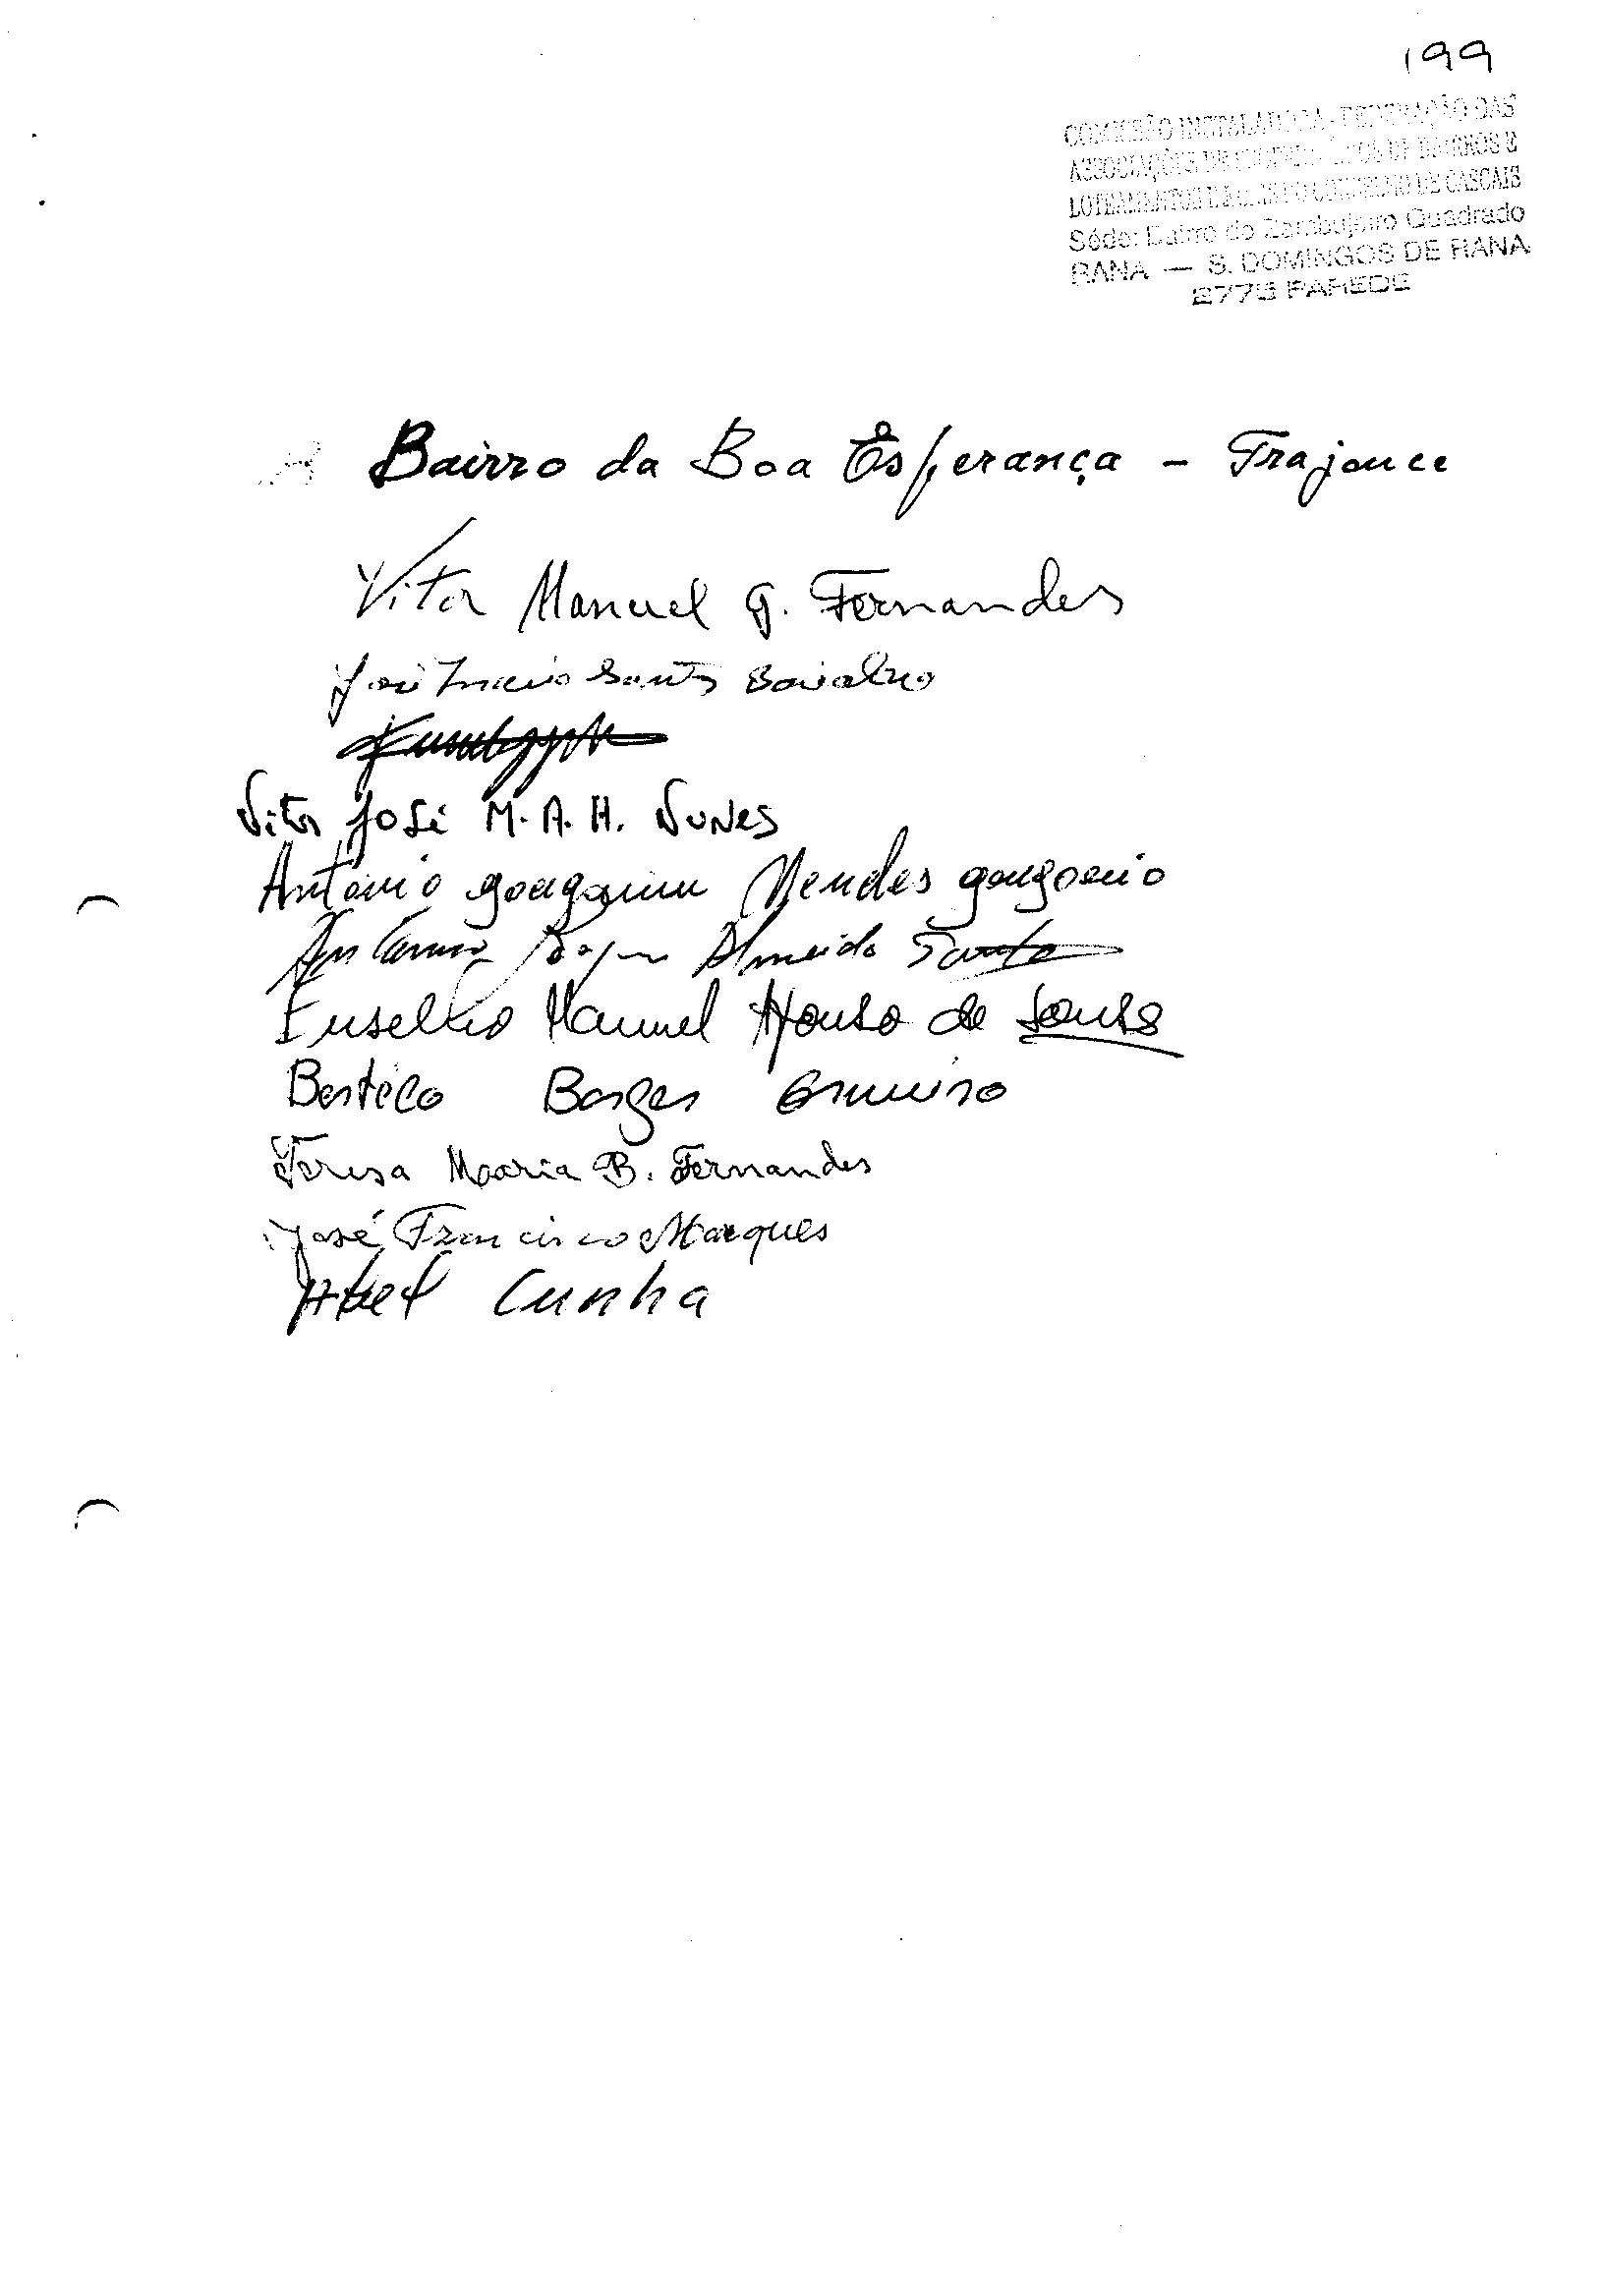 199
COMISSÃO INSTALADORA - FEDERAÇÃO DAS
ASSOCIAÇÕES DE DE BAIRROS E
DE CASCAIS
Séde: Bairro do Zambujeiro Quadrado
RANA — S. DOMINGOS DE RANA
2775 PAREDE
Bairro da Boa Esperança - Trajouce
Vitor Manuel G. Fernandes
José Santos
Vitor José M. A. H. Nunes
António Mendes
António Almeida Santos
Eusebio Manuel Afonso de Sousa
Borges
Teresa Maria B. Fernandes
José Francisco Marques
Abel Cunha